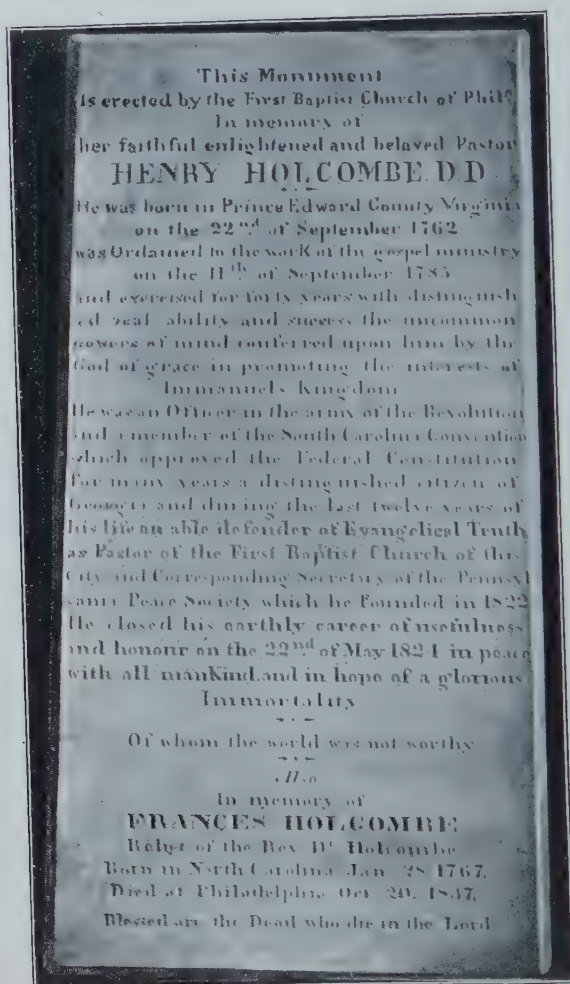 This Monument
is erected by the First Baptist Church of Philª
In memory of
her faithful enlightened and beloved Pastor
HENRY HOLCOMBE D.D
He was born in Prince Edward County Virginia
on the 22nd of September 1762
was Ordained to the work of the gospel ministry
on the 11th of September 1785
and exercised for forty years with distinguish
ed zeal ability and success the uncommon
powers of mind conferred upon him by the
God of grace in promoting the interests of
Immanuels Kingdom
He was an Officer in the army of the Revolution
and a member of the South Carolina Convention
which approved the Federal Constitution
for many years a distinguished citizen of
Georgia and during the last twelve years of
his life an able defender of Evangelical Truth
as Pastor of the First Baptist Church of this
City and Corresponding Secretary of the Pennsyl
vania Peace Society which he Founded in 1822
He closed his earthly career of usefulness
and honour on the 22nd of May 1824 in peace
with all manKind and in hope of a glorious
Immortality
Of whom the world was not worthy
Also
In memory of
FRANCES HOLCOMBE
Relict of the Rev Dr Holcombe
Born in North Carolina Jan 28 1767.
Died at Philadelphia Oct 20. 1837.
Blessed are the Dead who die in the Lord